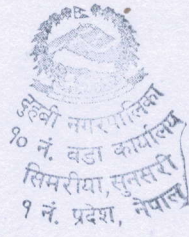 दुहबी नगरपालिका
१० नं. वडा कार्यालय
सिमरीया, सुनसरी
१ नं. प्रदेश, नेपाल